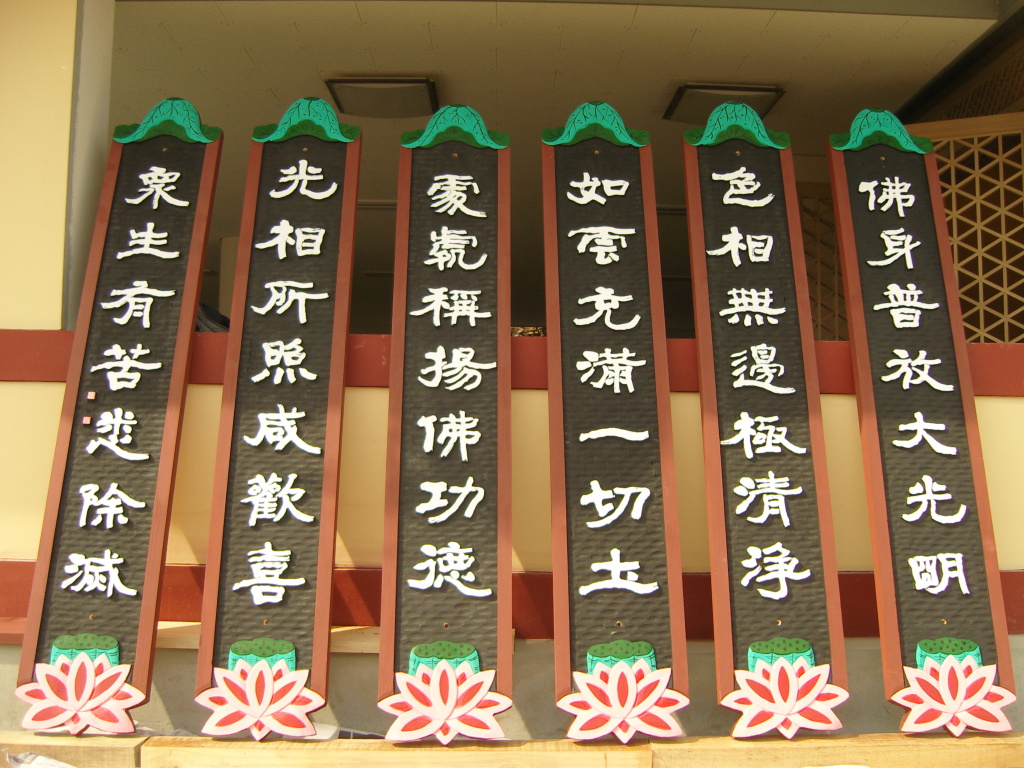 佛身普放大光明
色相無邊極清淨
如雲充滿一切土
處處稱揚佛功德
光相所照咸歡喜
衆生有苦悉除滅